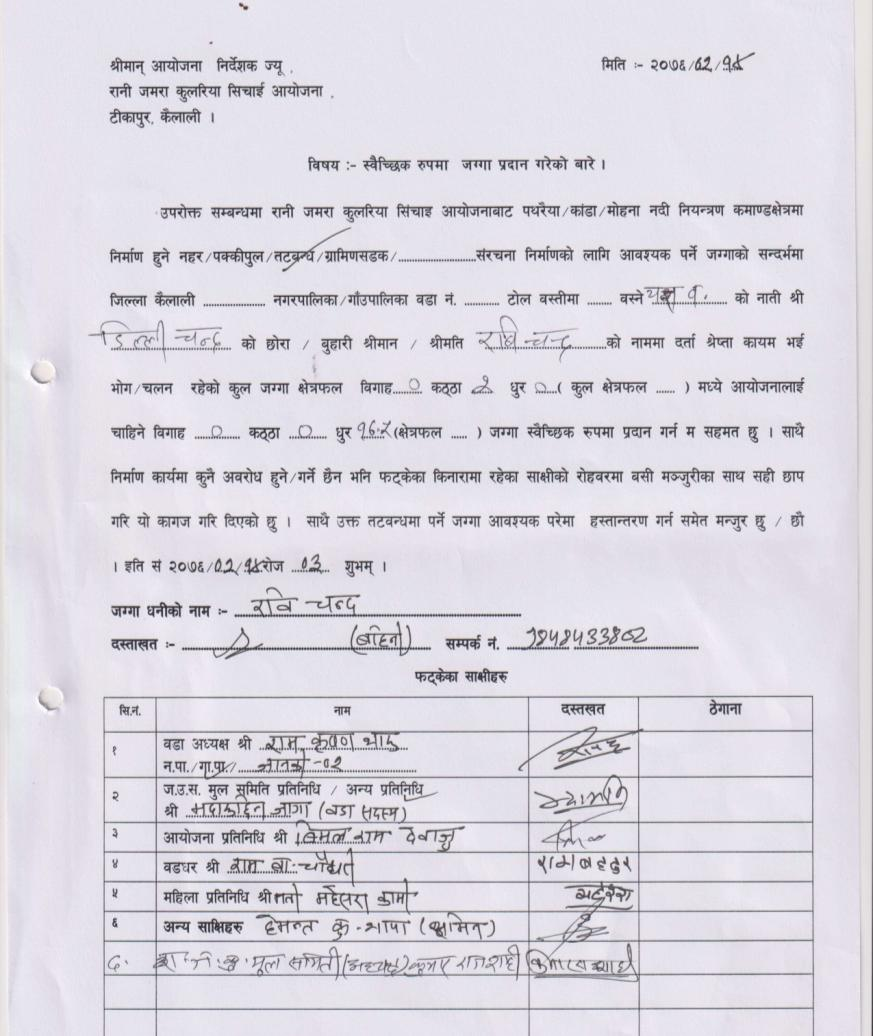 श्रीमान् आयोजना निर्देशक ज्यू ,
रानी जमरा कुलरिया सिचाई आयोजना ,
टीकापुर, कैलाली ।
मिति :- २०७६/०२/१४
विषय :- स्वैच्छिक रुपमा जग्गा प्रदान गरेको बारे ।
उपरोक्त सम्बन्धमा रानी जमरा कुलरिया सिंचाइ आयोजनाबाट पथरैया/कांडा/मोहना नदी नियन्त्रण कमाण्डक्षेत्रमा
निर्माण हुने नहर/पक्कीपुल/तटबन्ध/ग्रामिणसडक/........................संरचना निर्माणको लागि आवश्यक पर्ने जग्गाको सन्दर्भमा
जिल्ला कैलाली .................. नगरपालिका/गाँउपालिका वडा नं. .......... टोल वस्तीमा ....... वस्ने को नाती श्री
डिल्ली चन्द को छोरा / बुहारी श्रीमान / श्रीमति चन्द को नाममा दर्ता श्रेष्ता कायम भई
भोग/चलन रहेको कुल जग्गा क्षेत्रफल विगाह ० कठ्ठा २ धुर ० ( कुल क्षेत्रफल ...... ) मध्ये आयोजनालाई
चाहिने विगाह ० कठ्ठा ० धुर १६.२ (क्षेत्रफल ..... ) जग्गा स्वैच्छिक रुपमा प्रदान गर्न म सहमत छु । साथै
निर्माण कार्यमा कुनै अवरोध हुने/गर्ने छैन भनि फट्केका किनारामा रहेका साक्षीको रोहवरमा बसी मञ्जुरीका साथ सही छाप
गरि यो कागज गरि दिएको छु । साथै उक्त तटबन्धमा पर्ने जग्गा आवश्यक परेमा हस्तान्तरण गर्न समेत मन्जुर छु / छौ
। इति सं २०७६/०२/१४ रोज ०३ शुभम् ।
जग्गा धनीको नाम :- रवि चन्द
दस्ताखत :- (बहिनी) सम्पर्क नं. 9848433802
फट्केका साक्षीहरु
सि.नं. नाम दस्तखत ठेगाना
१ वडा अध्यक्ष श्री राम कृष्ण
न.पा./गा.पा./ जानकी -०२
२ ज.उ.स. मुल समिति प्रतिनिधि / अन्य प्रतिनिधि
श्री (वडा सदस्य)
३ आयोजना प्रतिनिधि श्री विमल राम देवाजु
४ वडघर श्री राम ब. चौधरी रामबहदुर
५ महिला प्रतिनिधि श्रीमती महेसरा कामी
६ अन्य साक्षिहरु हेमन्त कु. थापा (अमिन)
मूल समिती (अध्यक्ष) कुमार राज शाही